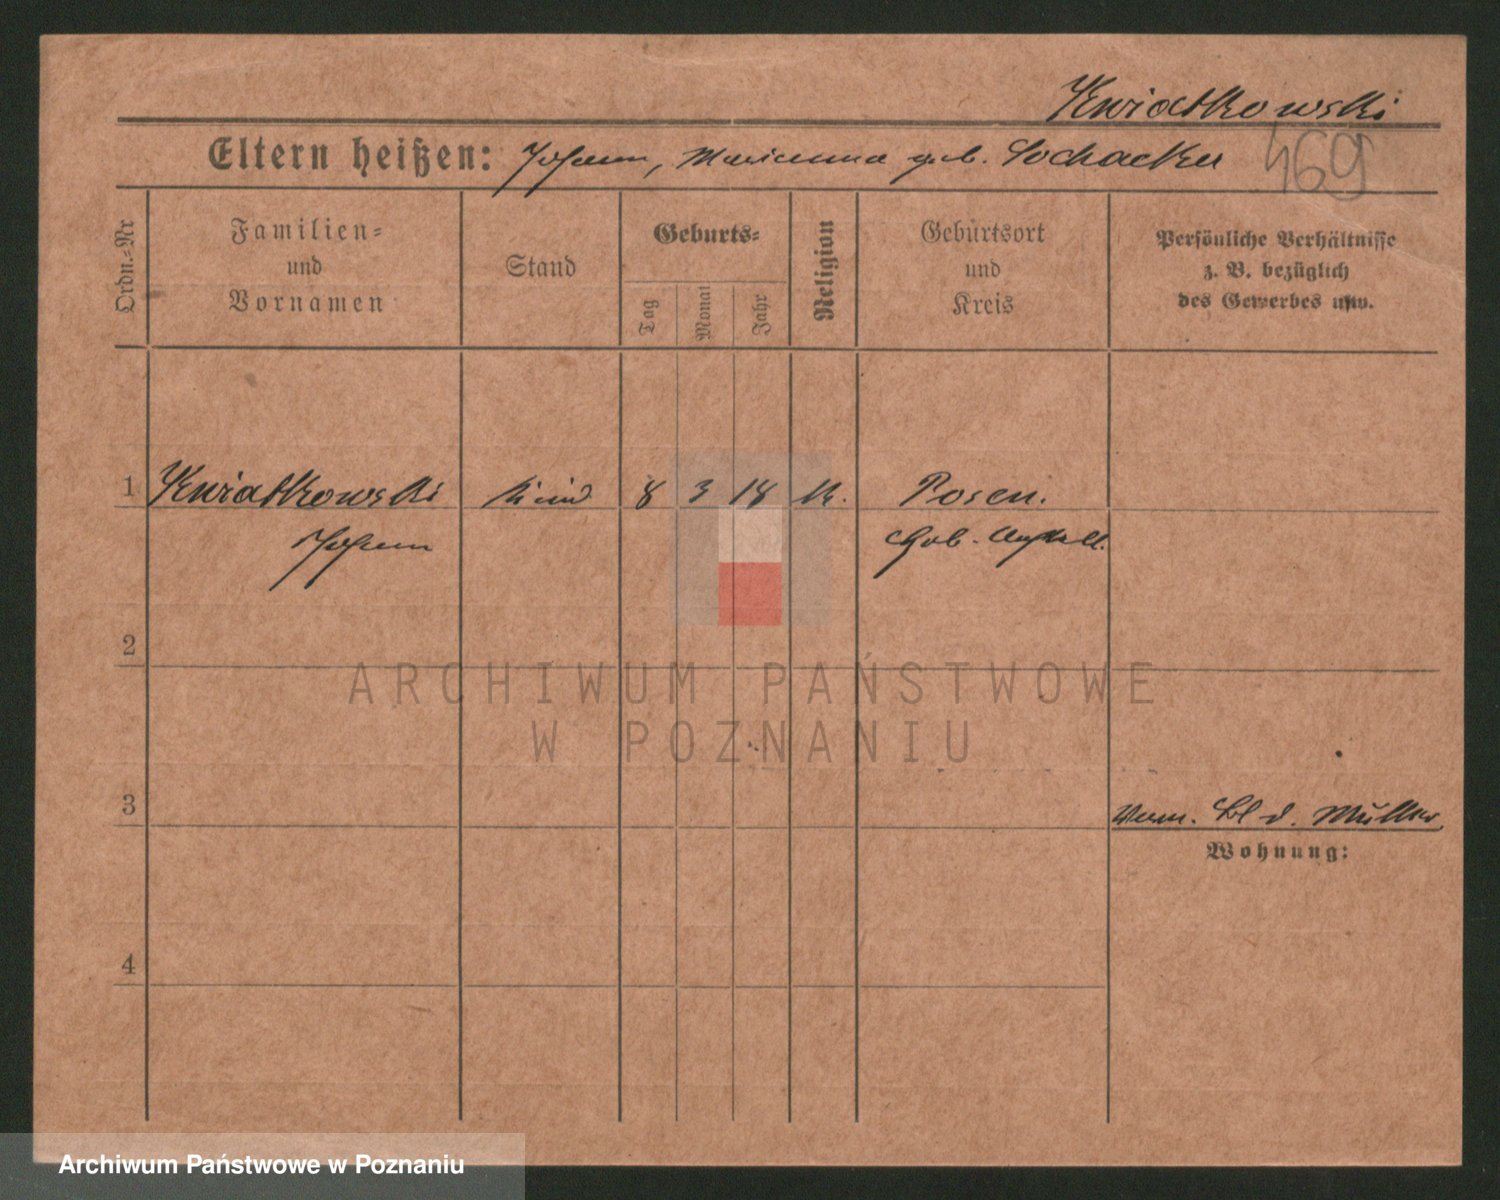 Kwiatkowski
Eltern heißen: Johann, Marianna geb. Sochacka
469
Ordn.-Nr
Familien=
und
Vornamen
Stand
Geburts=
Tag
Monat
Jahr
Religion
Geburtsort
und
Kreis
Persönliche Verhältnisse
z. B. bezüglich
des Gewerbes usw.
1 Kwiatkowski Kind 8 3 18 K. Posen.
Johann Geb.
2
ARCHIWUM PAŃSTWOWE
W POZNANIU
3 d. Mutter
Wohnung:
4
Archiwum Państwowe w Poznaniu